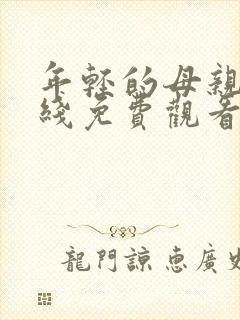 年輕的母親
綫免費觀看
龍門諒惠廣